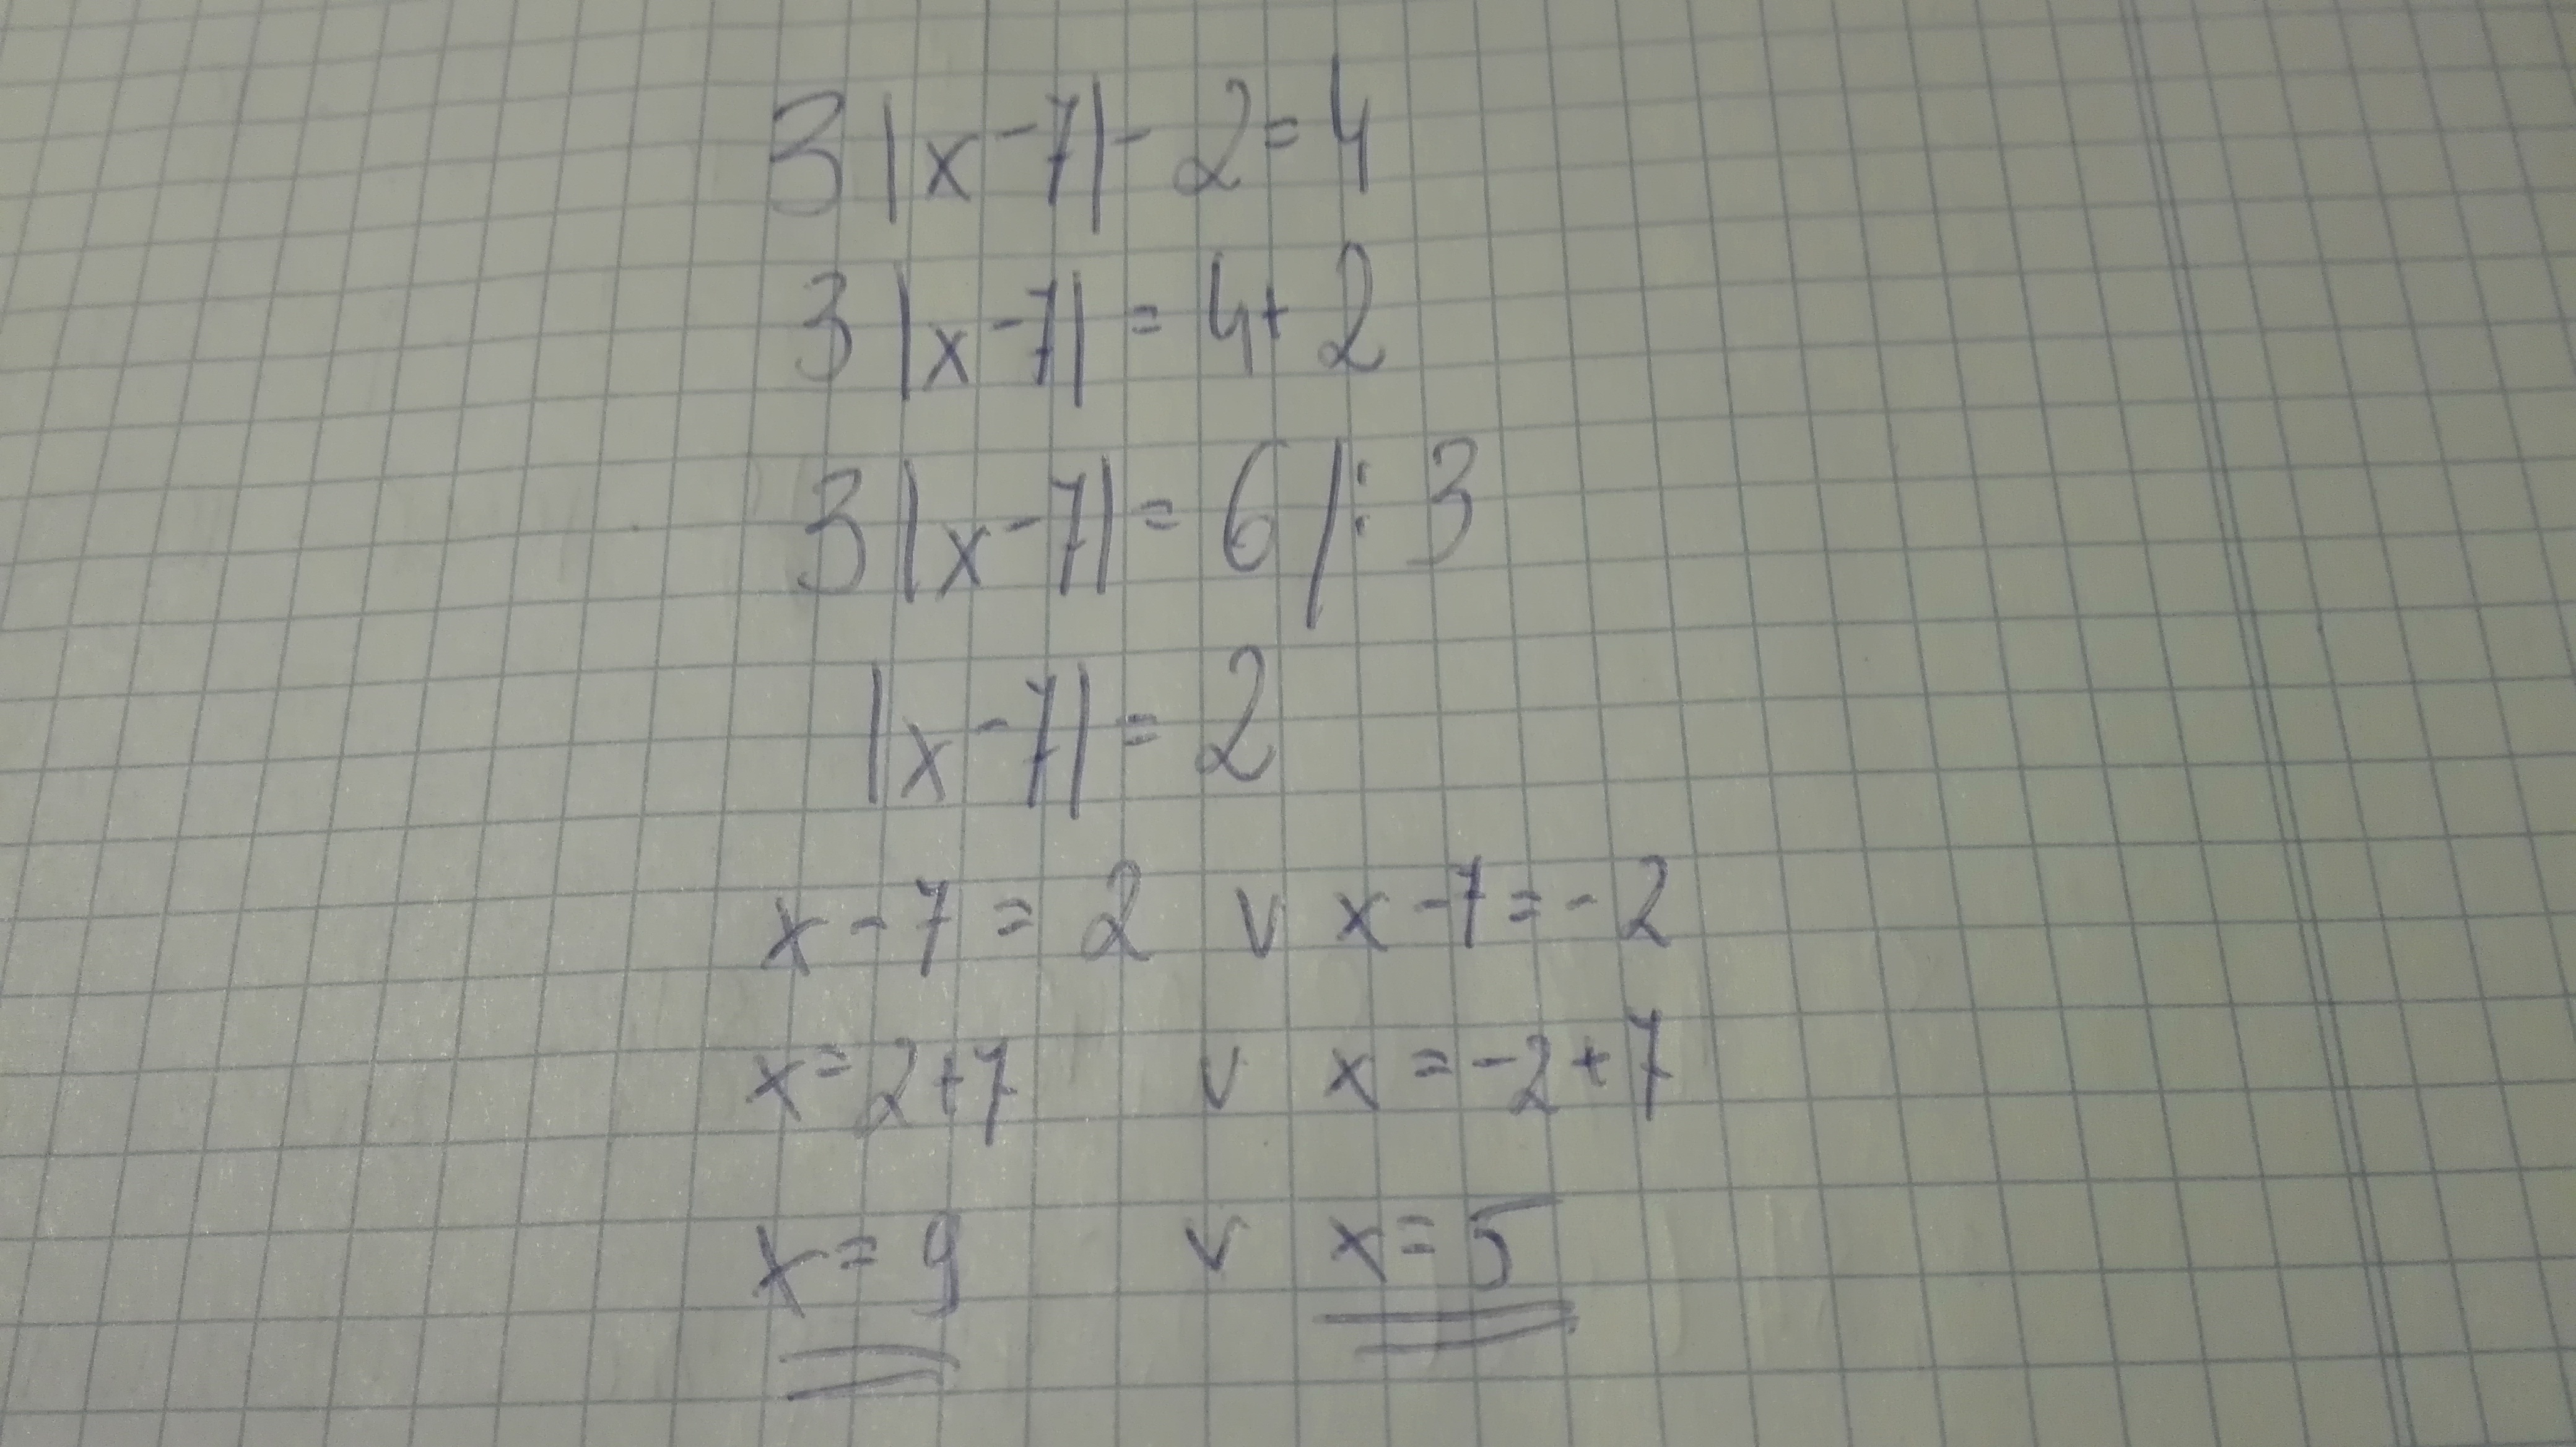 3|x-7|-2=4
3|x-7|=4+2
3|x-7|=6/:3
|x-7|=2
x-7=2 v x-7=-2
x=2+7 v x=-2+7
x=9 v x=5